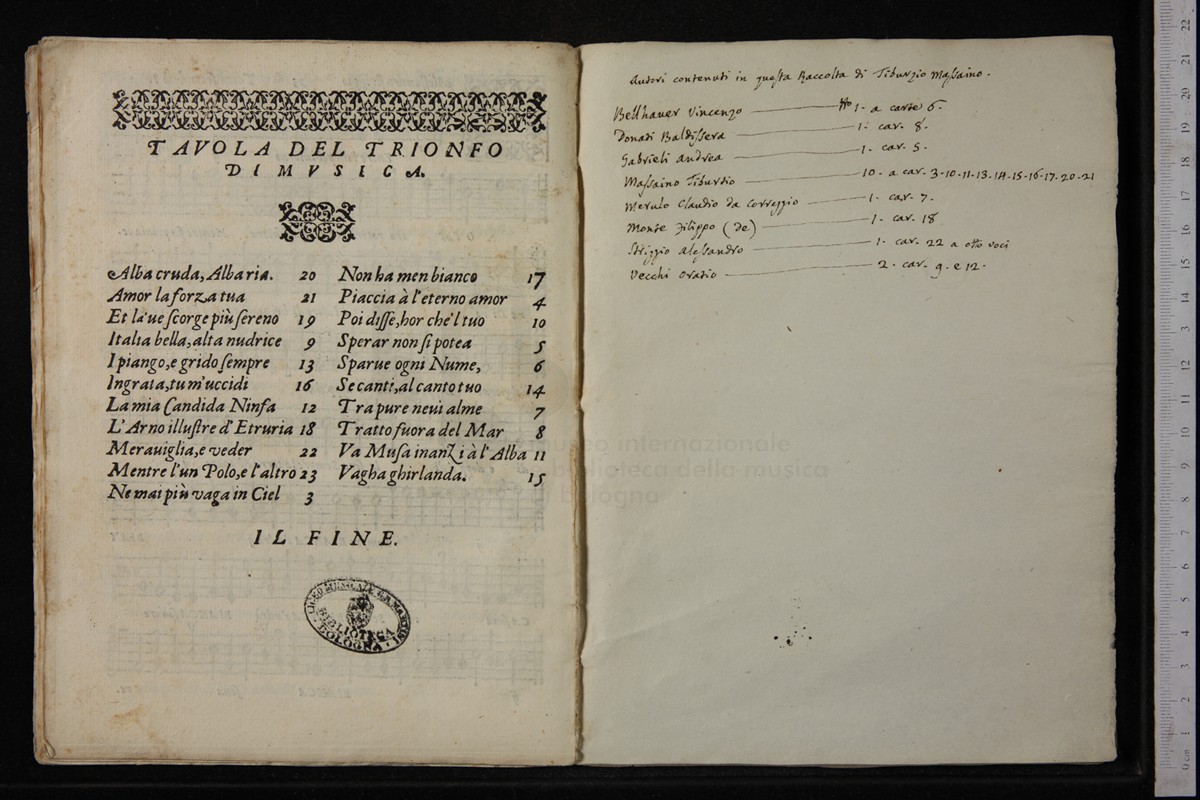 TAVOLA DEL TRIONFO
DI MVSICA.
Alba cruda, Alba ria. 20
Amor la forza tua 21
Et là've scorge più sereno 19
Italia bella, alta nudrice 9
I piango, e grido sempre 13
Ingrata, tu m'uccidi 16
La mia Candida Ninfa 12
L'Arno illustre d'Etruria 18
Meraviglia, e veder 22
Mentre l'un Polo, e l'altro 23
Ne mai più vaga in Ciel 3
Non ha men bianco 17
Piaccia à l'eterno amor 4
Poi disse, hor che'l tuo 10
Sperar non si potea 5
Sparue ogni Nume, 6
Se canti, al canto tuo 14
Tra pure neui alme 7
Tratto fuora del Mar 8
Va Musa inanzi à l'Alba 11
Vagha ghirlanda. 15
IL FINE.
LICEO MUSICALE G.B. MARTINI
BIBLIOTECA
BOLOGNA
Autori contenuti in questa Raccolta di Tiburzio Massaino.
Bellhauer Vincenzo — No 1. a carte 6.
Donati Baldissera — 1. car. 8.
Gabrieli Andrea — 1. car. 5.
Massaino Tiburtio — 10. a car. 3-10-11-13-14-15-16-17-20-21
Merulo Claudio da Correggio — 1. car. 7.
Monte Filippo (de) — 1. car. 18
Striggio Alessandro — 1. car. 22 a otto voci
Vecchi Oratio — 2. car. 9. e 12.
museo internazionale
biblioteca della musica
di bologna